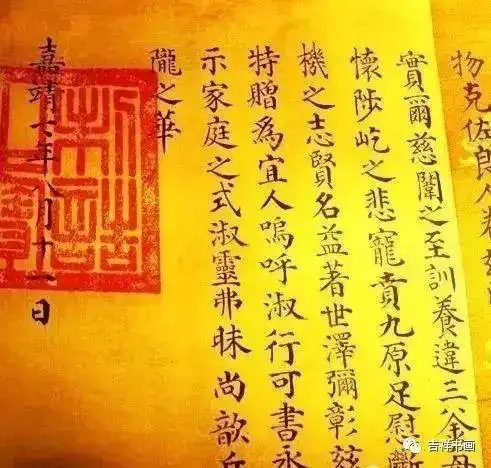 物克佐良人
實爾慈闈之至訓養違三釜母
懷陟屺之悲寵賁九原足慰斷
機之志賢名益著世澤彌彰茲
特贈為宜人嗚呼淑行可書永
示家庭之式淑靈弗昧尚歆丘
隴之華
嘉靖七年八月十一日
吉祥书画